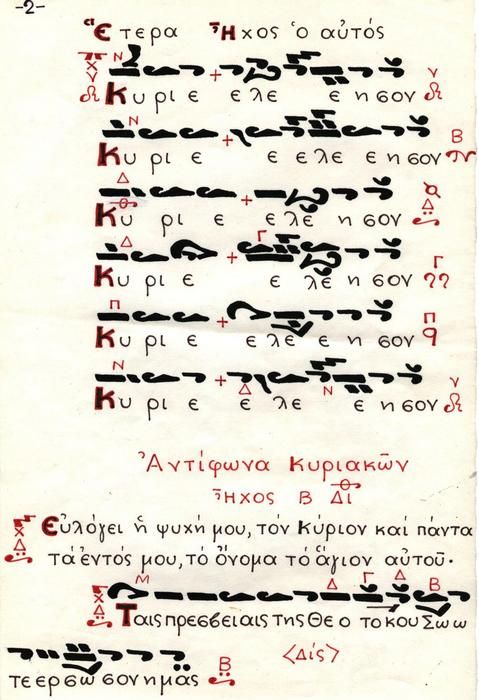 -2-
Ἕτερα Ἦχος ὁ αὐτός
Κυ ρι ε ε λε ε η σον
Κυ ρι ε ε ε λε ε η σον
Κυ ρι ε ε λε η σον
Κυ ρι ε ε λε η σον
Κυ ρι ε ε λε ε η σον
Κυ ρι ε ε λε ε η σον
Ἀντίφωνα Κυριακῶν
Ἦχος Β Δι
Εὐλόγει ἡ ψυχή μου, τόν Κύριον καί πάντα
τά ἐντός μου, τό ὄνομα τό ἅγιον αὐτοῦ.
Ταις πρεσβειαις της Θε ο το κου Σω ω
τε ερ σω σον η μας
<Δίς>